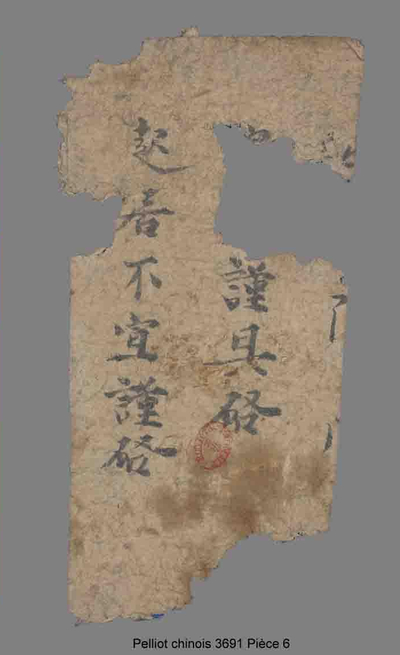 謹具啓
起居不宣謹啓
Pelliot chinois 3691 Pièce 6